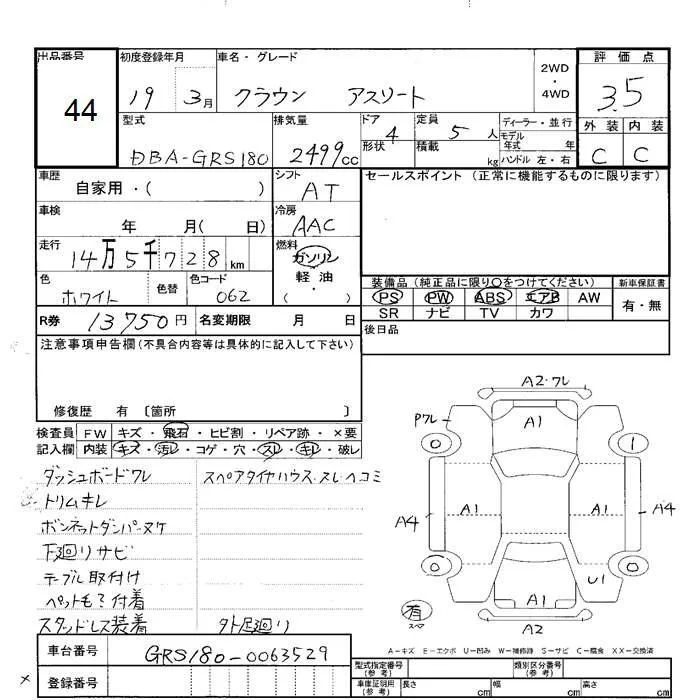 出品番号 初度登録年月 車名・グレード 評価点
44 19 3月 クラウン アスリート 2WD・4WD 3.5
型式 排気量 ドア 4 形状 定員 5 人 積載 kg ディーラー・並行 モデル年式 年 ハンドル 左・右 外装 内装
DBA-GRS180 2499cc C C
車歴 自家用・( ) シフト AT セールスポイント (正常に機能するものに限ります)
車検 年 月( 日) 冷房 AAC
走行 14万5千728km 燃料 ガソリン 軽油・( )
色 ホワイト 色替 色コード 062
装備品 (純正品に限り〇をつけてください) 新車保証書
PS PW ABS エアB AW 有・無
SR ナビ TV カワ
R券 13750円 名変期限 月 日 後日品
注意事項申告欄(不具合内容等は具体的に記入して下さい)
修復歴 有 〔箇所 〕
検査員記入欄 FW キズ・飛石・ヒビ割・リペア跡・×要
内装 キズ・汚レ・コゲ・穴・スレ・キレ・破レ
ダッシュボードワレ スペアタイヤハウス・スレヘコミ
トリムキレ
ボンネットダンパーヌケ
下廻りサビ
テーブル取付け
ペットも?付着
スタッドレス装着 外足廻り
A2・ワレ
Pワレ A1
0 1
A4 A1 A1 A4
0 0
U1
有 スペア A1
A2
A-キズ E-エクボ U-凹み W-補修跡 S-サビ C-腐食 XX-交換済
車台番号 GRS180-0063529
型式指定番号(参考) 類別区分番号(参考)
登録番号 車庫証明用(参考) 長さ cm 幅 cm 高さ cm
×